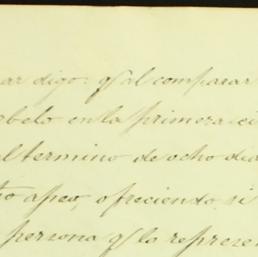 ar digo: q̃ al comparar
rbelo en la primera ci
l termino de ocho dia
apeo, ofreciendo si
persona q̃ lo represe